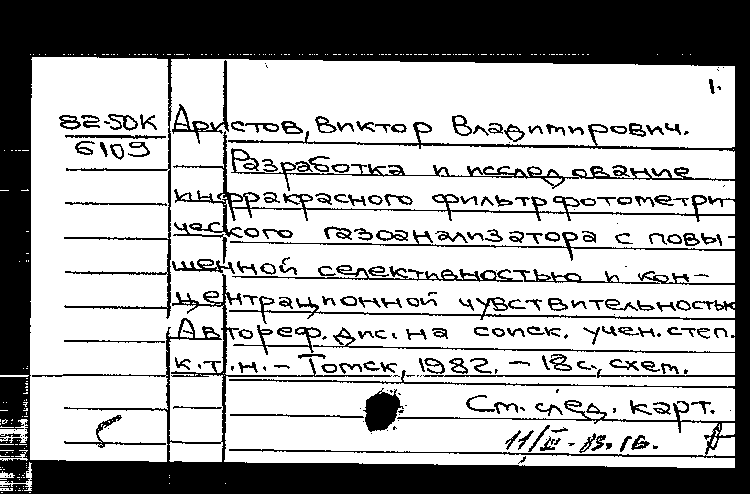 1.
82-50К Аристов, Виктор Владимирович.
6109
Разработка и исследование
инфракрасного фильтрфотометри-
ческого газоанализатора с повы-
шенной селективностью и кон-
центрационной чувствительностью
Автореф. дис. на соиск. учен. степ.
к.т.н. – Томск, 1982. – 18 с., схем.
См. след. карт.
11/III-83.